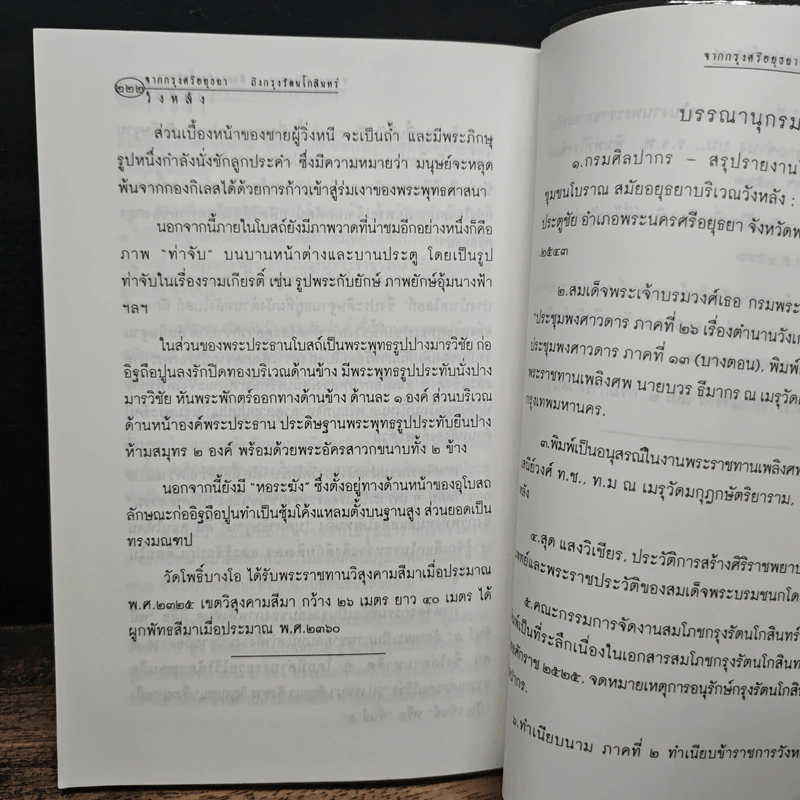 ๒๒๒
จากกรุงศรีอยุธยา ถึงกรุงรัตนโกสินทร์
วังหลัง
ส่วนเบื้องหน้าของชายผู้วิ่งหนี จะเป็นถ้ำ และมีพระภิกษุ
รูปหนึ่งกำลังนั่งชักลูกประคำ ซึ่งมีความหมายว่า มนุษย์จะหลุด
พ้นจากกองกิเลสได้ด้วยการก้าวเข้าสู่ร่มเงาของพระพุทธศาสนา
นอกจากนี้ภายในโบสถ์ยังมีภาพวาดที่น่าชมอีกอย่างหนึ่งก็คือ
ภาพ “ท่าจับ” บนบานหน้าต่างและบานประตู โดยเป็นรูป
ท่าจับในเรื่องรามเกียรติ์ เช่น รูปพระกับยักษ์ ภาพยักษ์อุ้มนางฟ้า
ฯลฯ
ในส่วนของพระประธานโบสถ์เป็นพระพุทธรูปปางมารวิชัย ก่อ
อิฐถือปูนลงรักปิดทองบริเวณด้านข้าง มีพระพุทธรูปประทับนั่งปาง
มารวิชัย หันพระพักตร์ออกทางด้านข้าง ด้านละ ๑ องค์ ส่วนบริเวณ
ด้านหน้าองค์พระประธาน ประดิษฐานพระพุทธรูปประทับยืนปาง
ห้ามสมุทร ๒ องค์ พร้อมด้วยพระอัครสาวกขนาบทั้ง ๒ ข้าง
นอกจากนี้ยังมี “หอระฆัง” ซึ่งตั้งอยู่ทางด้านหน้าของอุโบสถ
ลักษณะก่ออิฐถือปูนทำเป็นซุ้มโค้งแหลมตั้งบนฐานสูง ส่วนยอดเป็น
ทรงมณฑป
วัดโพธิ์บางโอ ได้รับพระราชทานวิสุงคามสีมาเมื่อประมาณ
พ.ศ.๒๓๒๕ เขตวิสุงคามสีมา กว้าง ๒๖ เมตร ยาว ๔๐ เมตร ได้
ผูกพัทธสีมาเมื่อประมาณ พ.ศ.๒๓๖๐
จากกรุงศรีอยุธยา
บรรณานุกรม
๑.กรมศิลปากร – สรุปรายงาน
ชุมชนโบราณ สมัยอยุธยาบริเวณวังหลัง :
ประตูชัย อำเภอพระนครศรีอยุธยา จังหวัด
.๒๕๔๓
๒.สมเด็จพระเจ้าบรมวงศ์เธอ กรมพระ
“ประชุมพงศาวดาร ภาคที่ ๒๖ เรื่องตำนานวัง
ประชุมพงศาวดาร ภาคที่ ๑๓ (บางตอน), พิมพ์
พระราชทานเพลิงศพ นายบวร ธีมากร ณ เมรุวัด
กรุงเทพมหานคร.
๓.พิมพ์เป็นอนุสรณ์ในงานพระราชทานเพลิงศพ
ท.ช., ท.ม ณ เมรุวัดมกุฏกษัตริยาราม,
หลัง
๔.สุด แสงวิเชียร, ประวัติการสร้างศิริราชพยา
แพทย์และพระราชประวัติของสมเด็จพระบรมชนก
๕.คณะกรรมการจัดงานสมโภชกรุงรัตนโกสินทร์
เป็นที่ระลึกเนื่องในเอกสารสมโภชกรุงรัตนโกสิน
ศักราช ๒๕๒๕, จดหมายเหตุการอนุรักษ์กรุงรัตนโกสิน
๖.ทำเนียบนาม ภาคที่ ๒ ทำเนียบข้าราชการวังห